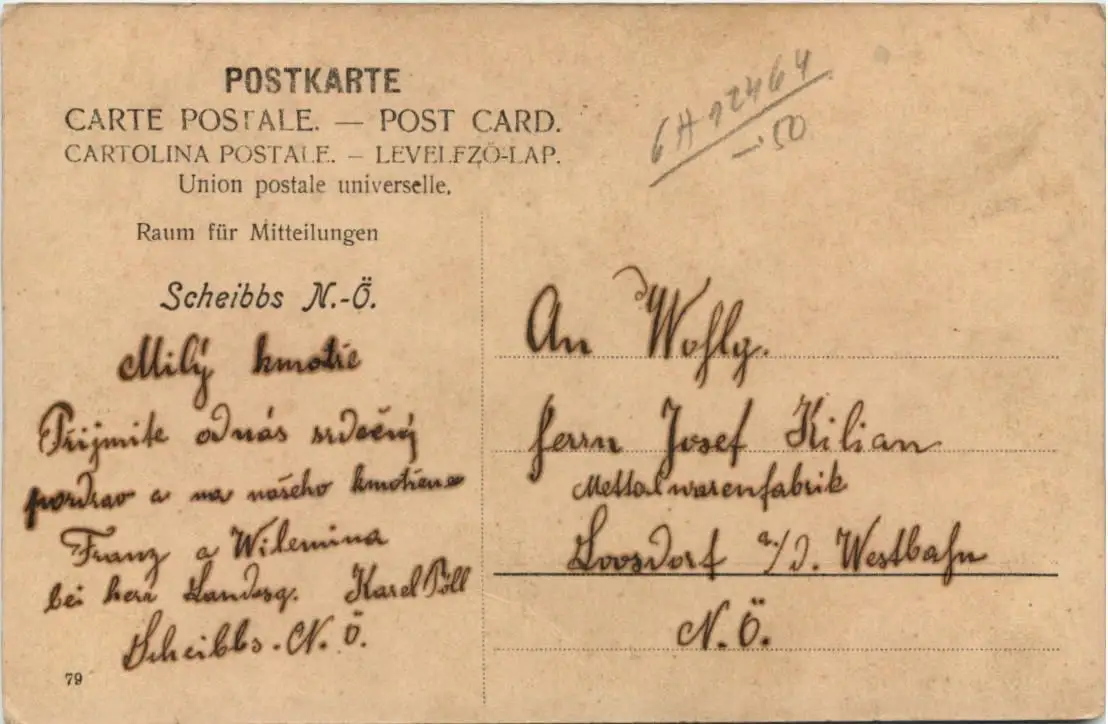 POSTKARTE
CARTE POSTALE. — POST CARD.
CARTOLINA POSTALE. — LEVELEZŐ-LAP.
Union postale universelle.
Raum für Mitteilungen
Scheibbs N.-Ö.
Milý kmotře
Přijmite odnás srdečný
pozdrav a na našeho kmotřena
Franz a Wilemina
bei herr Landesg. Karel Pöll
Scheibbs. N. Ö.
79
6H 12464
-.50
An Wohlg.
Herrn Josef Kilian
Mettalwarenfabrik
Loosdorf a./d. Westbahn
N. Ö.